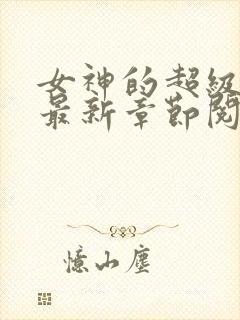 女神的超级
最新章节阅
憶山塵